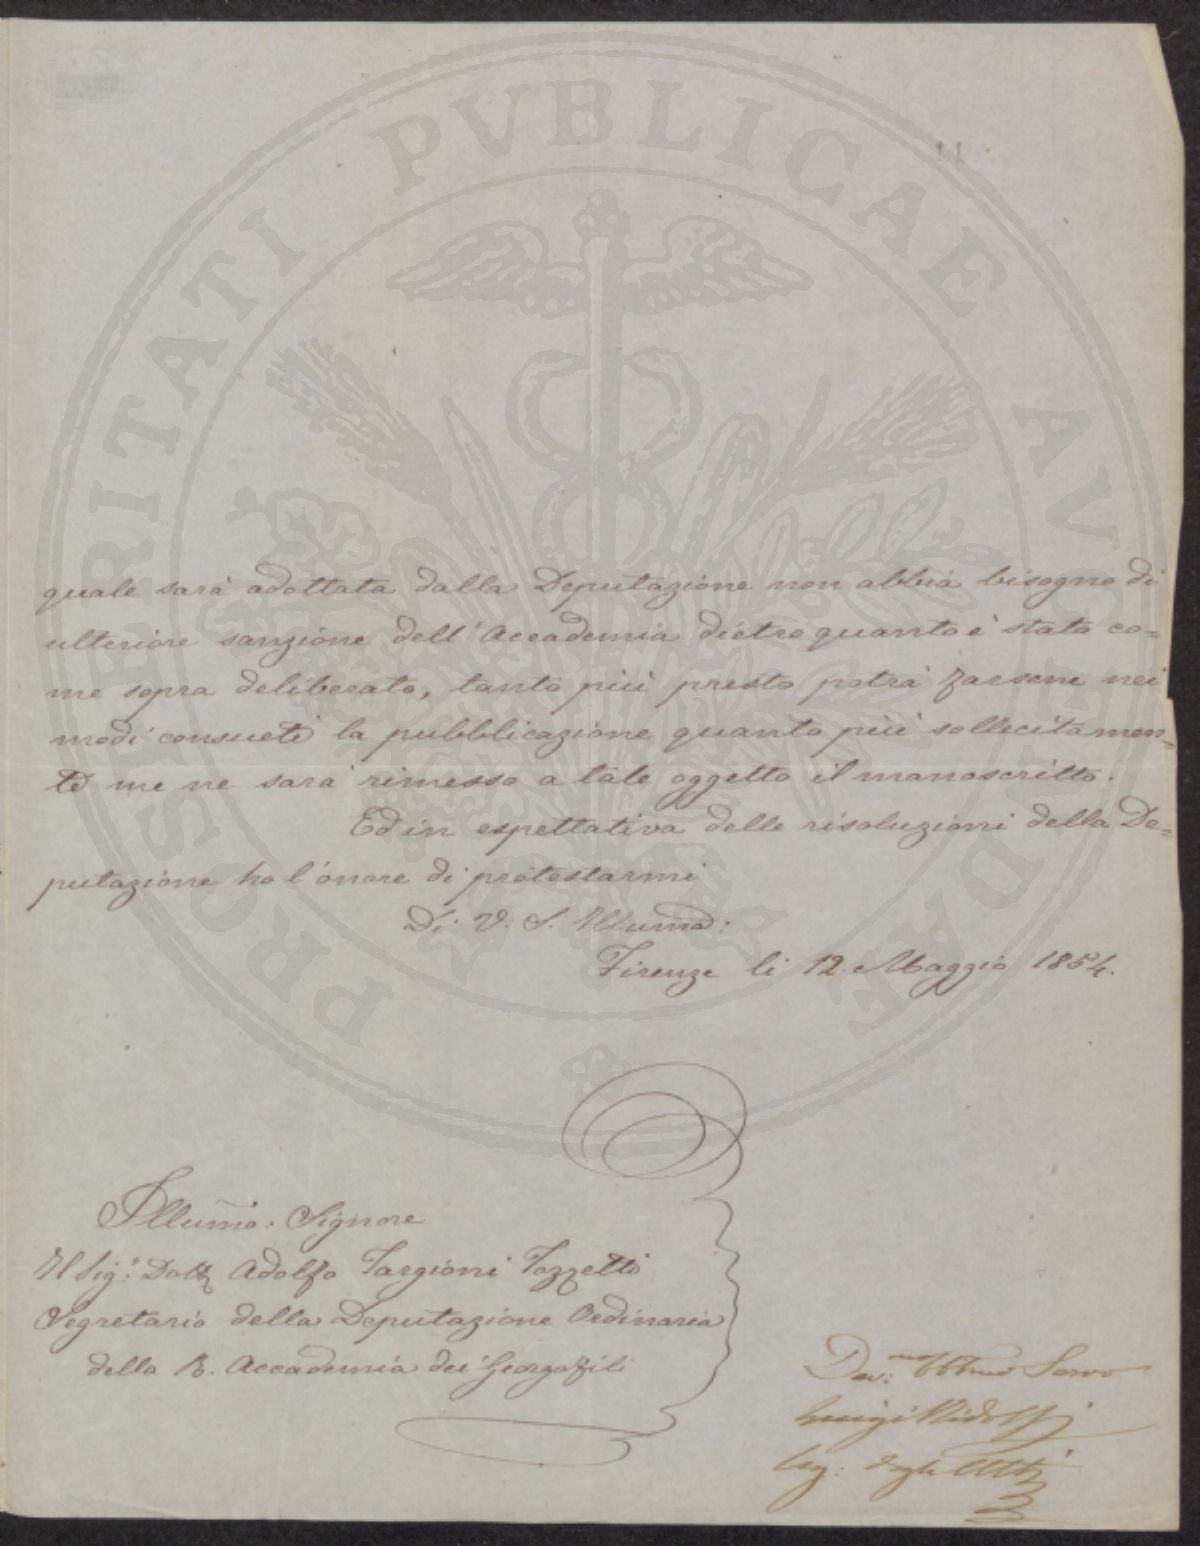 PROSPERITATI PVBLICAE AVGENDAE
11
quale sarà adottata dalla Deputazione non abbia bisogno di
ulteriore sanzione dell'Accademia dietro quanto è stato co=
me sopra deliberato, tanto più presto potrà farsene nei
modi consueti la pubblicazione quanto più sollecitamen=
te me ne sarà rimesso a tale oggetto il manoscritto.
Ed in espettativa delle risoluzioni della De=
putazione ho l'onore di protestarmi
Di V. S. Illuma:
Firenze li 12. Maggio 1854.
Illumo: Signore
Il Sigr: Dott Adolfo Targioni Tozzetti
Segretario della Deputazione Ordinaria
della R. Accademia dei Georgofili
Dev:mo Obbmo Servo
Luigi Ridolfi
Seg: degli Atti